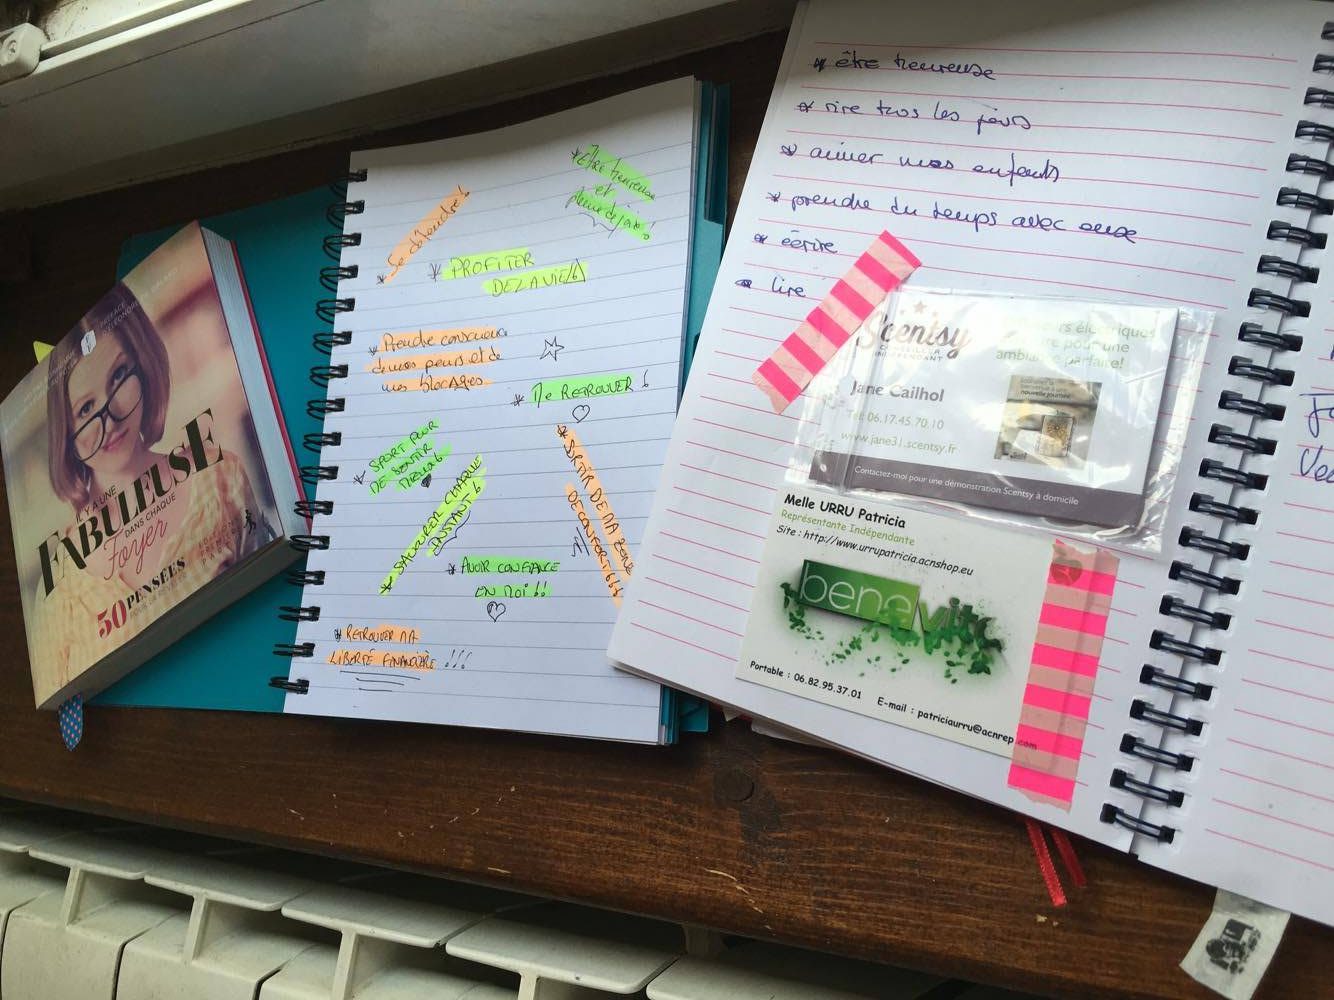 PRÉFACE
IL Y A UNE
FABULEUSE
DANS CHAQUE
Foyer
50 PENSÉES
* Se détendre !
* Être heureuse
et
pleine de joie.
* PROFITER
DE LA VIE !
* Prendre conscience
de mes peurs et de
mes blocages.
* Me RETROUVER !
* SPORT POUR
ME SENTIR
* SAVOURER CHAQUE
INSTANT !
* SORTIR DE MA ZONE
DE CONFORT !!!
* AVOIR CONFIANCE
EN MOI !!
* RETROUVER MA
LIBERTÉ FINANCIÈRE !!!
* être heureuse
* rire tous les jours
* aimer mes enfants
* prendre du temps avec eux
* écrire
* lire
Scentsy
CONSEILLER
INDÉPENDANT
électriques
pour une
ambiance parfaite!
nouvelle journée
Jane Cailhol
Tél: 06.17.45.70.10
www.jane31.scentsy.fr
Contactez-moi pour une démonstration Scentsy à domicile
Melle URRU Patricia
Représentante Indépendante
Site : http://www.urrupatricia.acnshop.eu
benevita
Portable : 06.82.95.37.01
E-mail : patriciaurru@acnrep.com